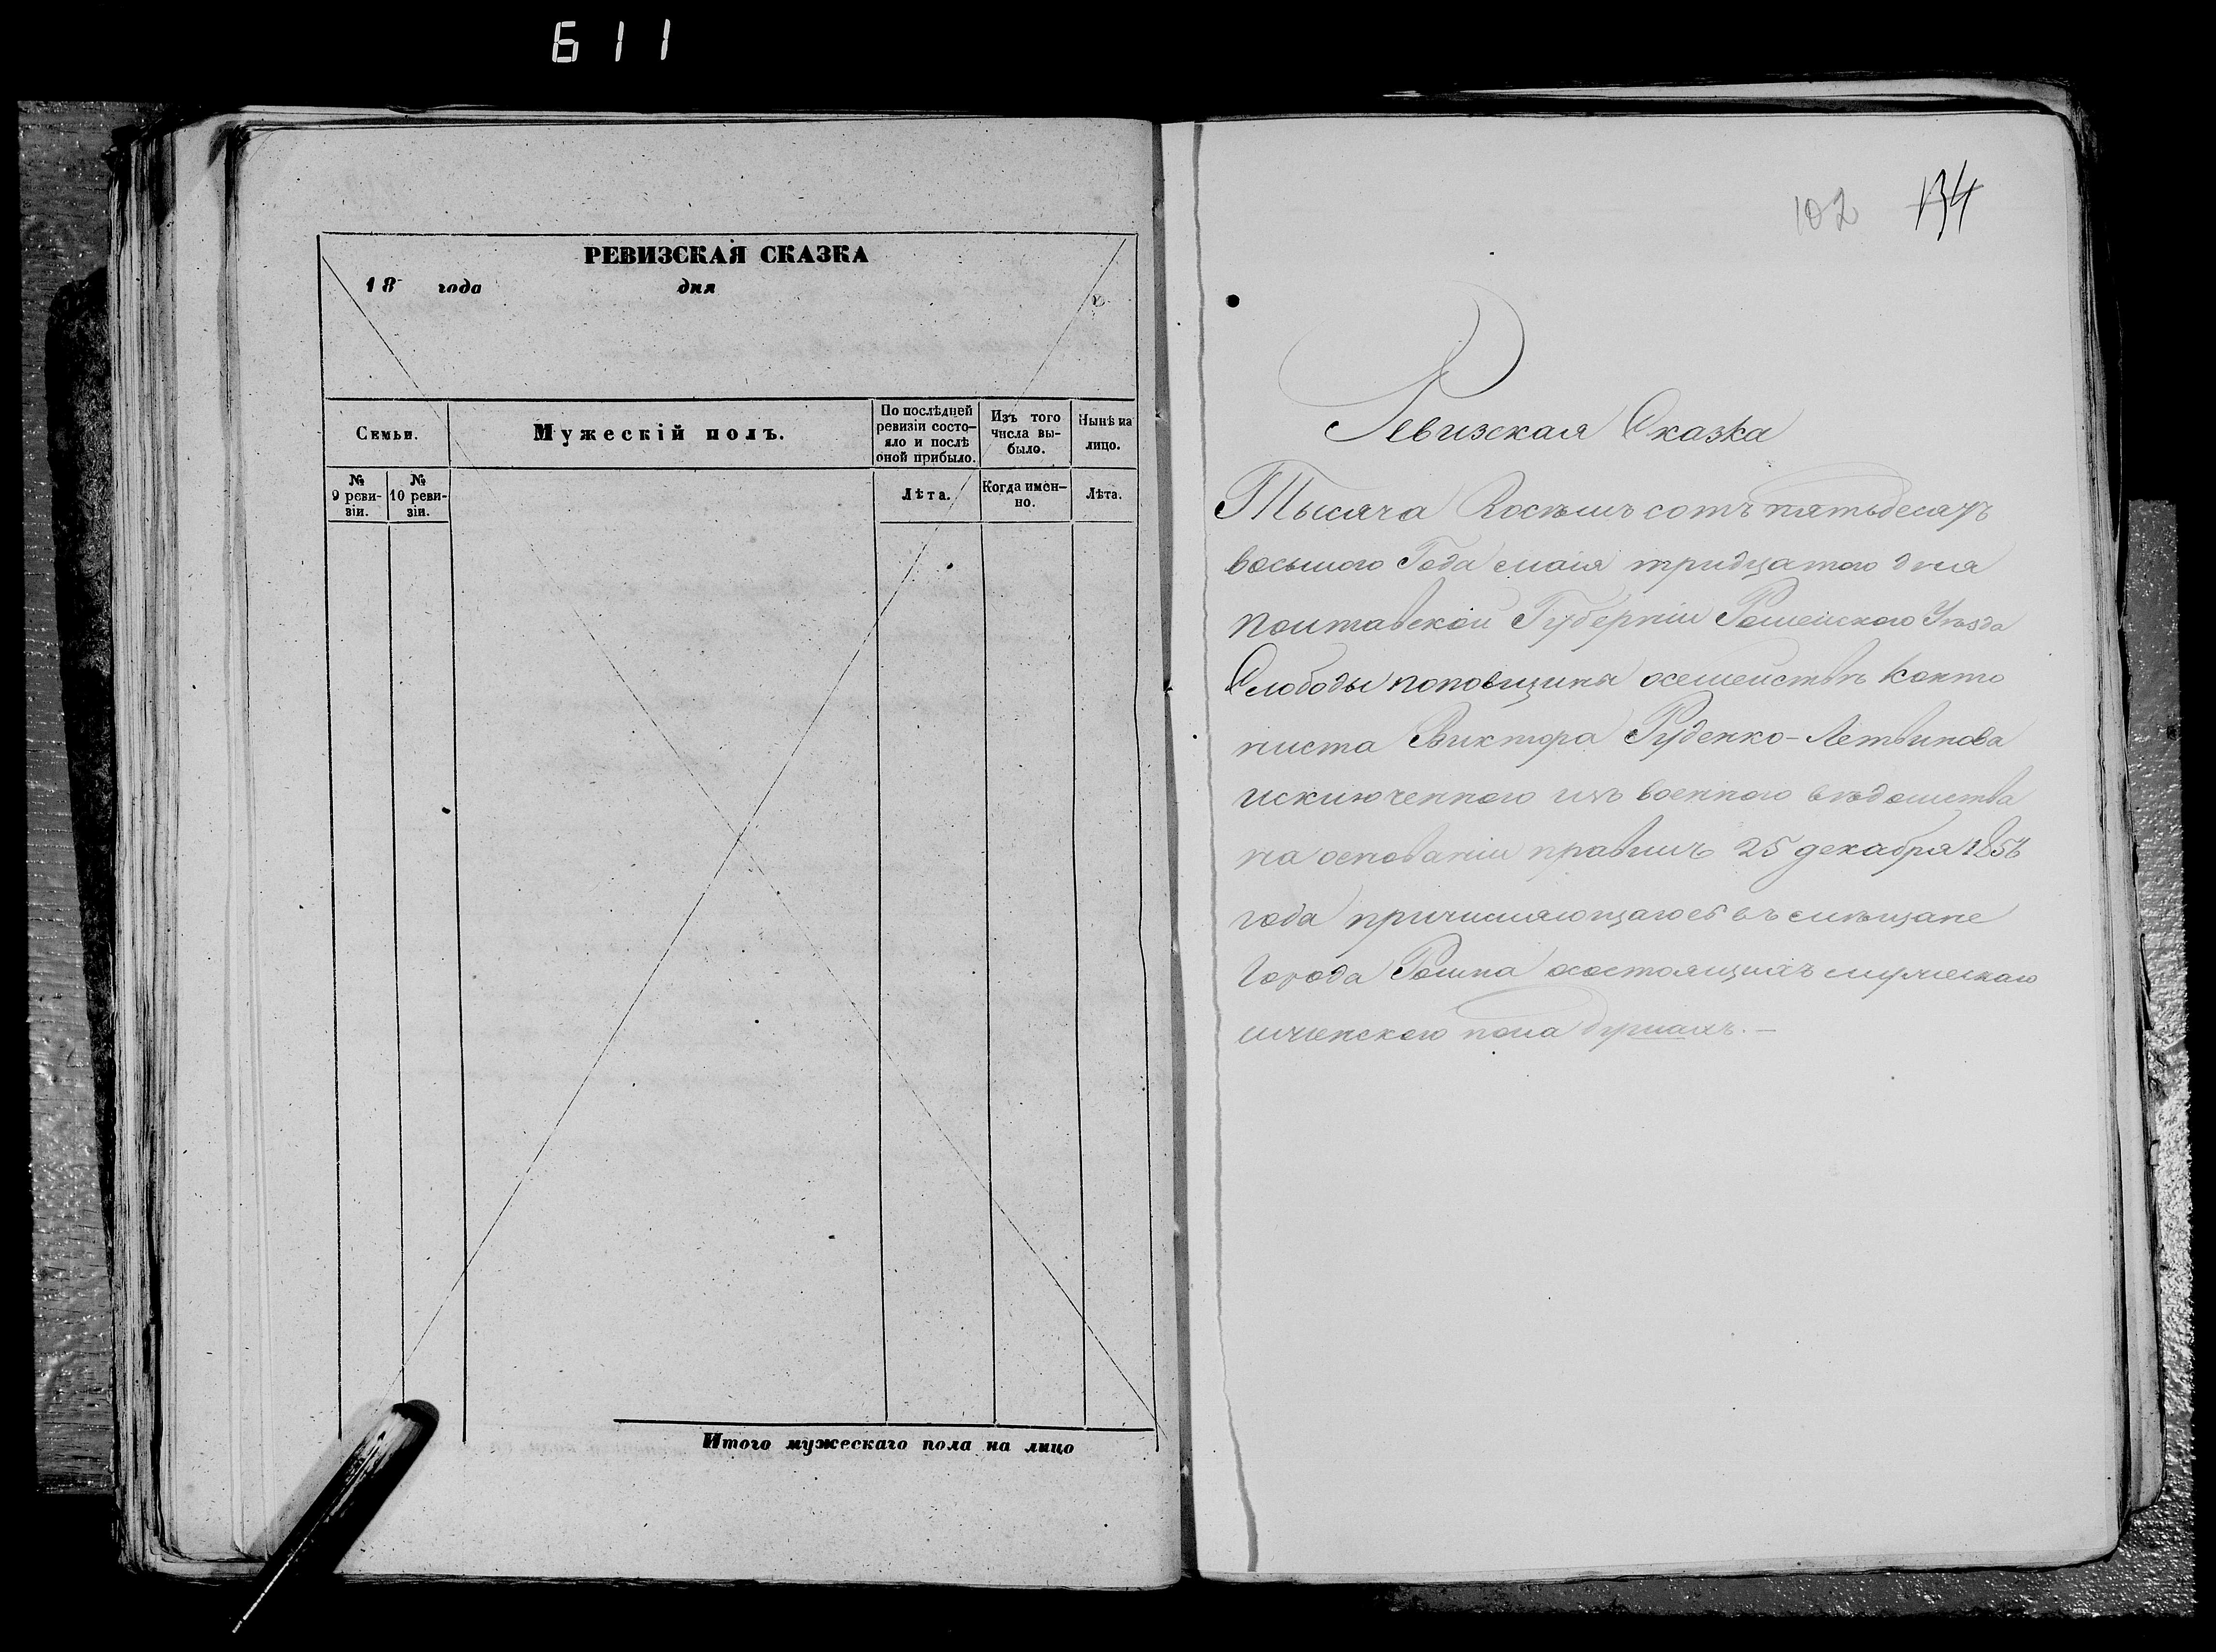 611
РЕВИЗСКАЯ СКАЗКА
18 года дня
Семьи.
Мужескій полъ.
По послѣдней ревизіи состо-
яло и послѣ
оной прибыло.
Изъ того
числа вы-
было.
Нынѣ на
лицо.
№
9 реви-
зіи.
№
10 реви-
зіи.
Лѣта.
Когда имен-
но.
Лѣта.
Итого мужескаго пола на лицо
102 134
Ревизская Сказка
Тысяча Восѣмъ сотъ пятьдесятъ
восьмого Года маія тридцатого дня
Полтавской Губерніи Роменского Уѣзда
Слободы поповщины осемействѣ Канто
ниста Виктора Руденко-Летвинова
исключенного изъ военного вѣдомства
на основаніи правилъ 25 декабря 1856
года причисляющагось въ мѣщане
Города Ромна осостоящихъ мужескаго
иженского пола душахъ. —